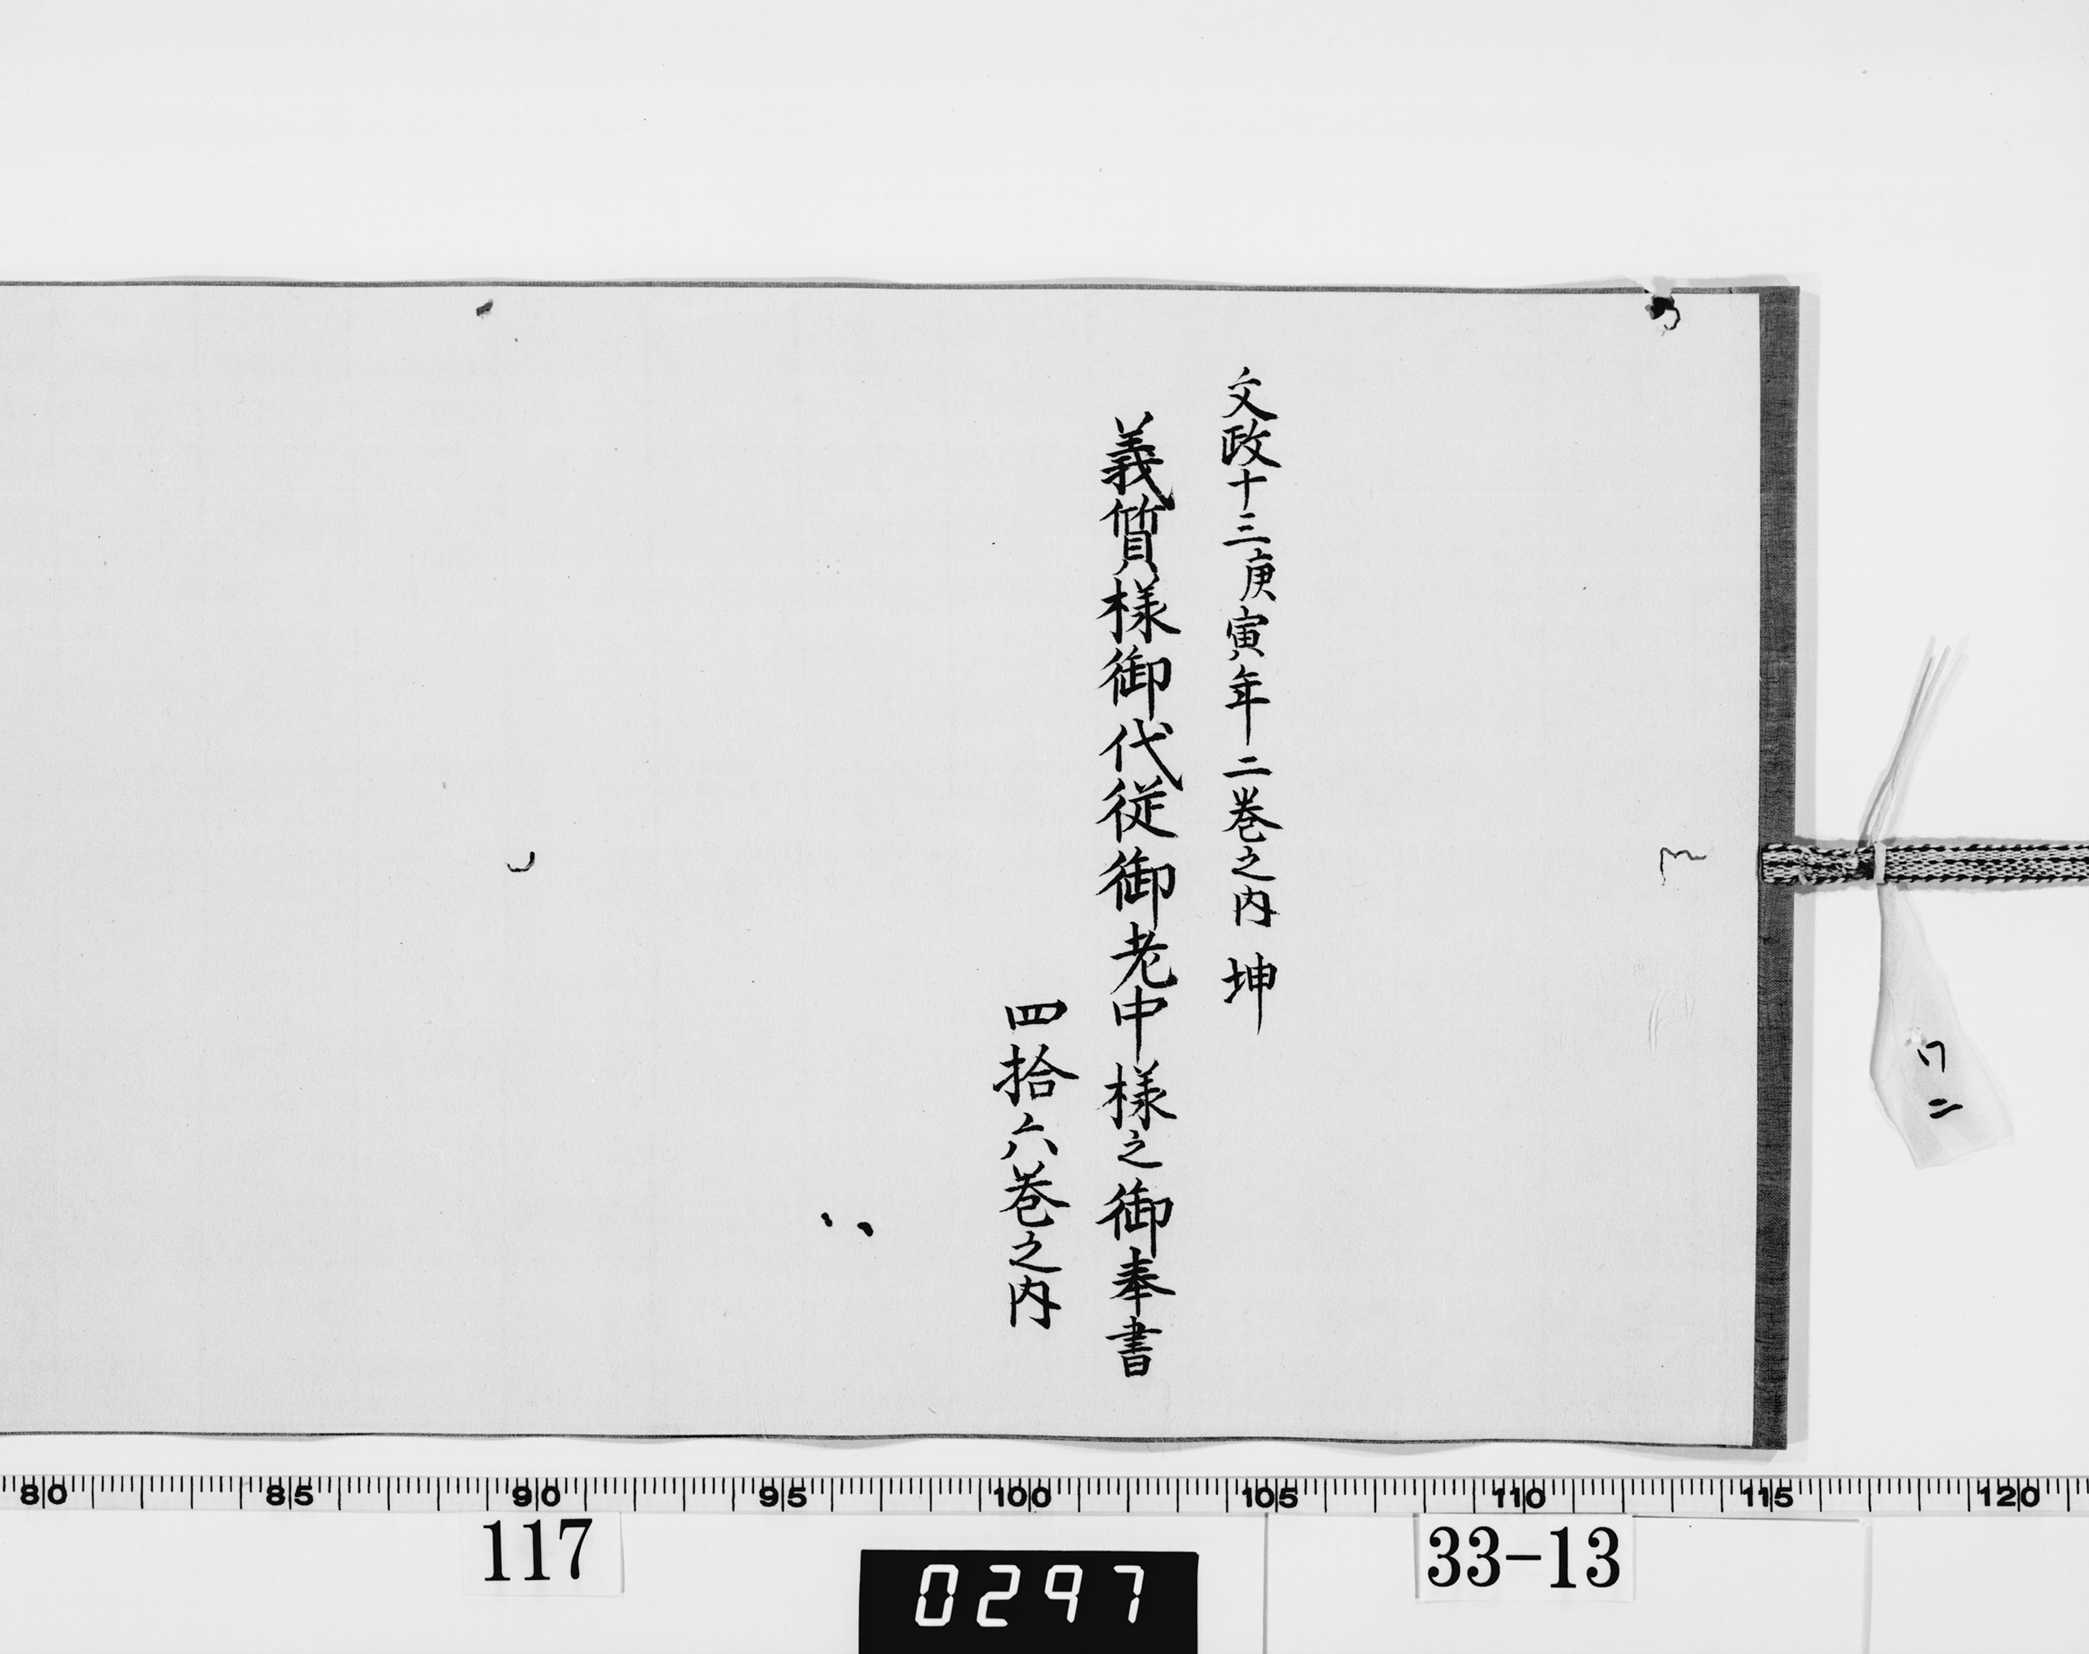 文政十三庚寅年二巻之内 坤
義質様御代従御老中様之御奉書
四拾六巻之内
80 85 90 95 100 105 110 115 120
117
0297
33-13